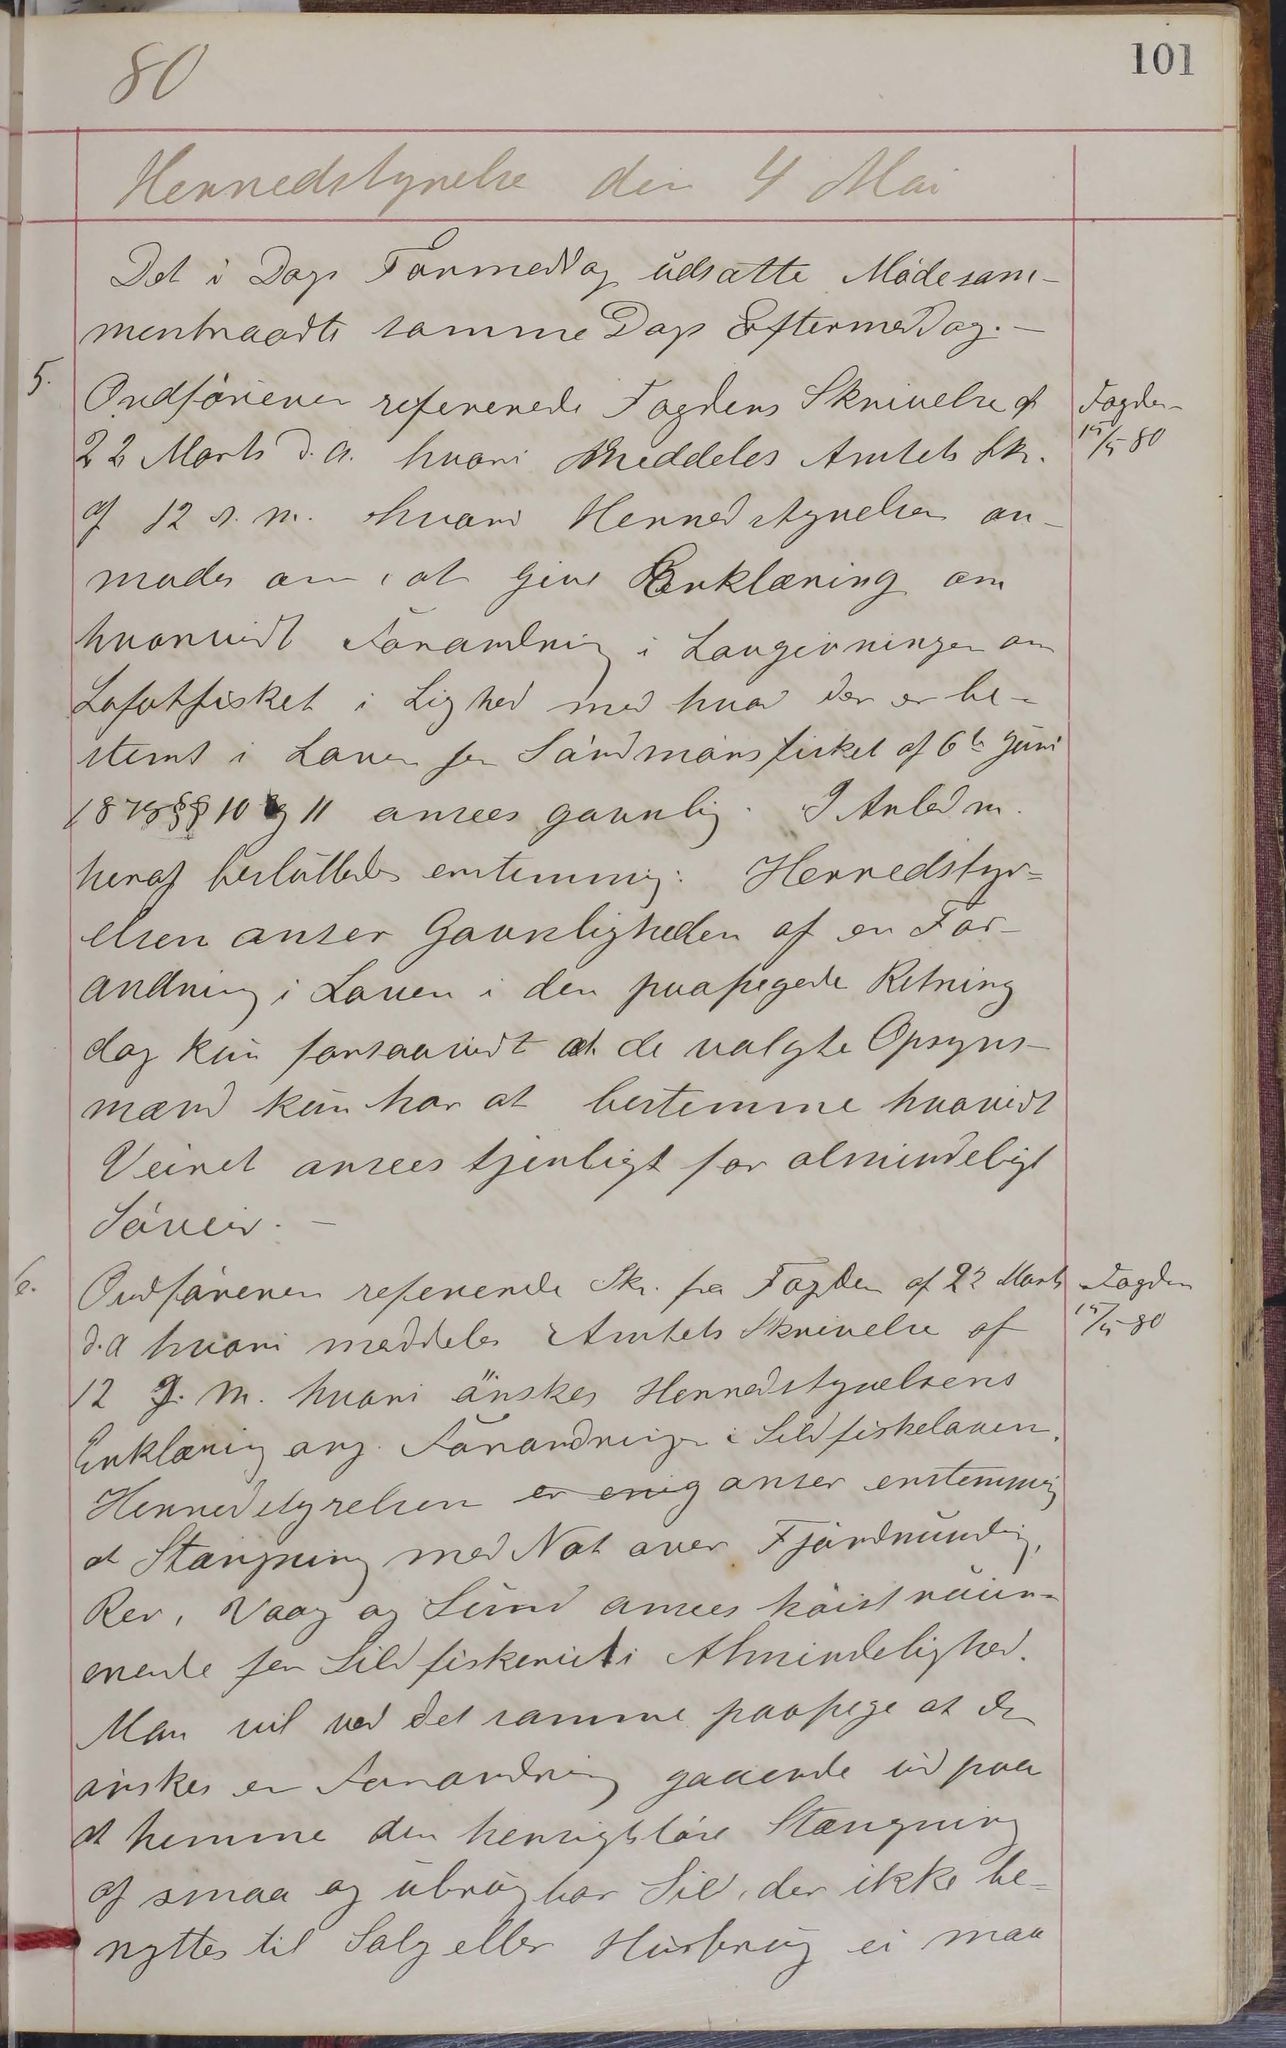 80
101
Herredstyrelse den 4 Mai
Det i Dags Formeddag udsatte Møde sam-
mentraadte samme Dags Eftermeddag. -
5. Ordføreren refererede Fogdens Skrivelse af
Fogden
15/5 80
22 Marts d. A. hvori meddeles Amtets Skr.
af 12 s. m. hvori Herredstyrelsen an-
modes om, at give Erklæring om
hvorvidt Forandring i Lovgivningen om
Lofotfisket i Lighed med hvad der er be-
stemt i Loven for Søndmørsfisket af 6te Juni
1878 §§ 10 og 11 ansees gavnlig. I Anledn.
heraf besluttedes enstemmig: Herredstyr=
elsen anser Gavnligheden af en For-
andring i Loven i den paapegede Retning
dog kun forsaavidt at de valgte Opsyns-
mænd kun har at bestemme hvorvidt
Veiret ansees tjenligt for almindeligt
Søveir. -
6. Ordføreren refererede Skr. fra Fogden af 22 Marts
Fogden
15/5 80
d. A hvori meddeles Amtets Skrivelse af
12 s. M. hvori ønskes Herredstyrelsens
Erklæring ang. Forandringer i Sildfiskeloven.
Herredstyrelsen er enig anser enstemmig
at Stængning med Not over Fjordmunding,
Rev, Vaag og Sund ansees høist ruin-
erende for Sildfiskeriet i Almindelighed.
Man vil ved det samme paapege at der
ønskes en Forandring gaaende ud paa
at hemme den hensigtsløse Stængning
af smaa og ubrugbar Sild, der ikke be-
nyttes til Salg eller Husbrug ei maa